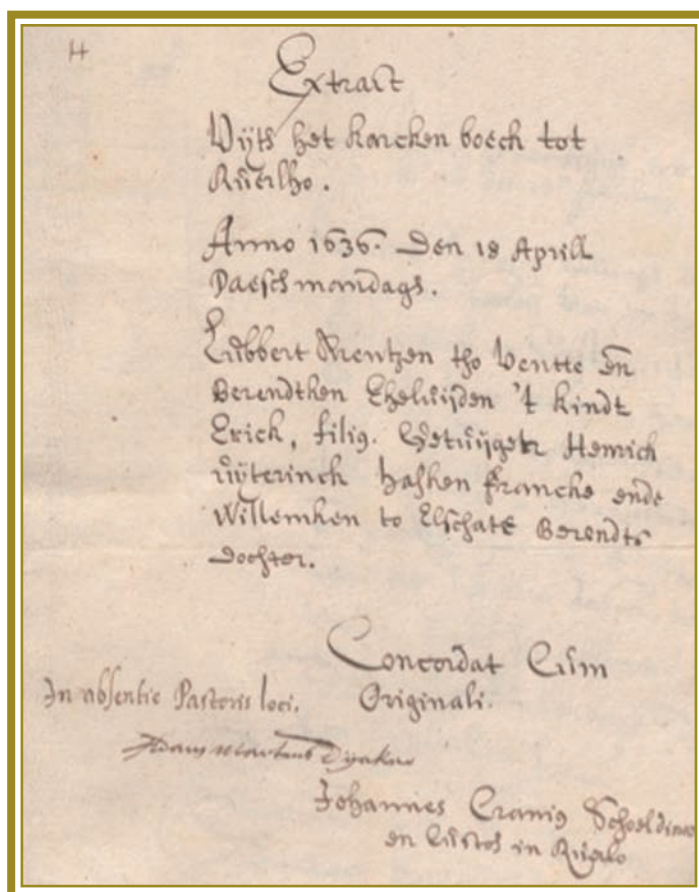 H
Extract
Uijts het karcken boech tot
Rüerlho.
Anno 1636. Den 18 Aprill
Paeschmondags.
Lübbert Wentzen tho Ventte en
Berendtken Ehelüijden 't kindt
Erick, filig. Getüijgen Henrich
rüijterinck Hasken francke ende
Willemken to Elschate Berendts
dochter.
Concordat Cüm
Originali.
In absentie Pastoris loci.
Johannes Cranig
en Cüstos in Rüerlo